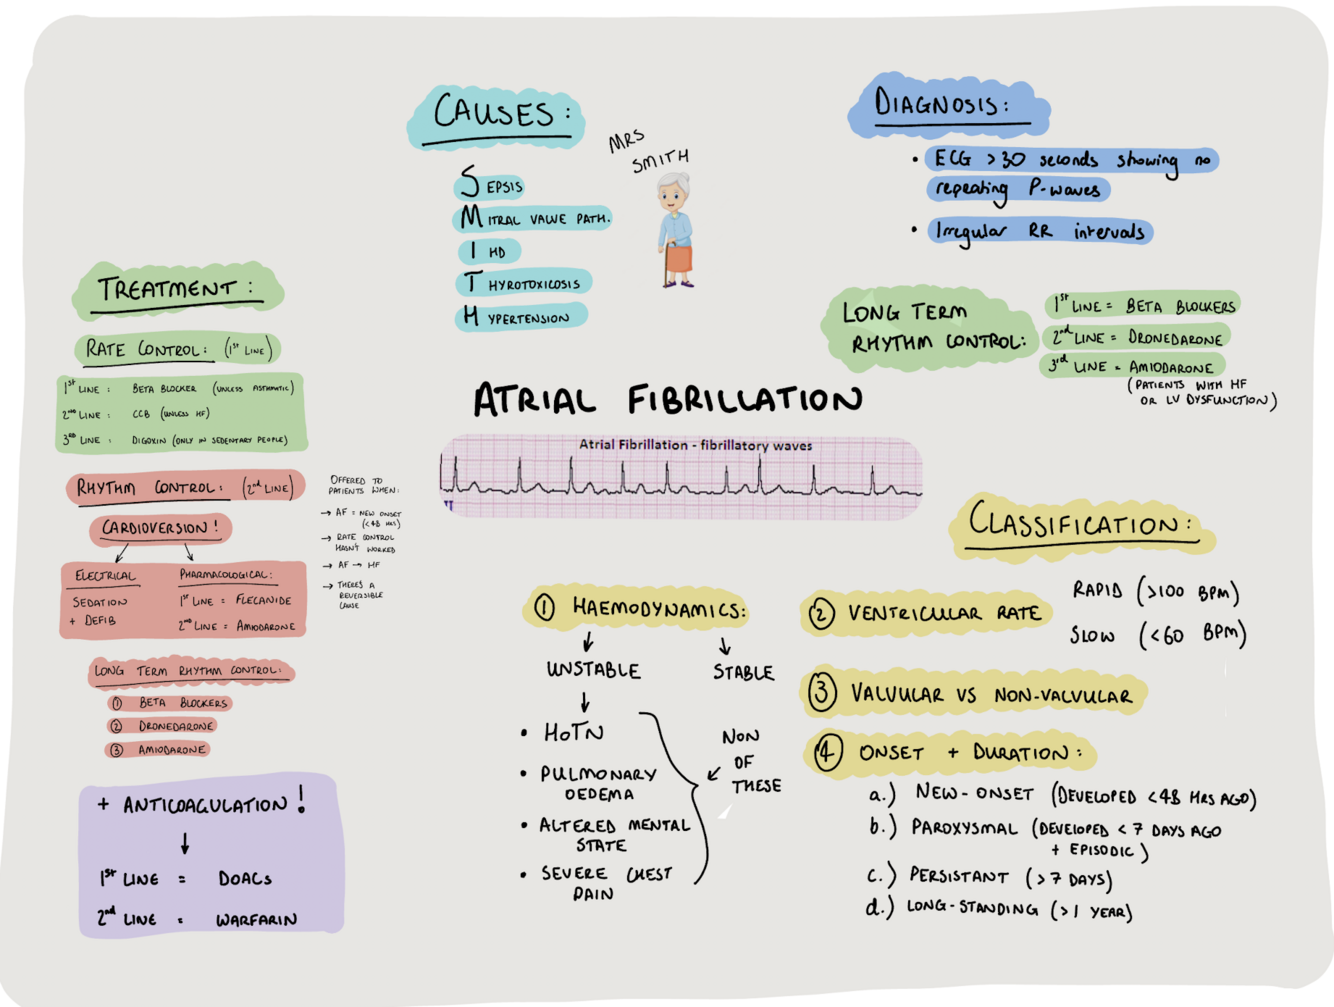 CAUSES:
MRS
SMITH
SEPSIS
MITRAL VALVE PATH.
IHD
THYROTOXICOSIS
HYPERTENSION
DIAGNOSIS:
• ECG >30 seconds showing no
repeating P-waves
• Irregular RR intervals
LONG TERM
RHYTHM CONTROL:
1st LINE = BETA BLOCKERS
2nd LINE = DRONEDARONE
3rd LINE = AMIODARONE
(PATIENTS WITH HF
OR LV DYSFUNCTION)
TREATMENT:
RATE CONTROL: (1st LINE)
1st LINE: BETA BLOCKER (UNLESS ASTHMATIC)
2nd LINE: CCB (UNLESS HF)
3RD LINE: DIGOXIN (ONLY IN SEDENTARY PEOPLE)
RHYTHM CONTROL: (2nd LINE)
CARDIOVERSION!
ELECTRICAL
SEDATION
+ DEFIB
PHARMACOLOGICAL:
1st LINE = FLECANIDE
2nd LINE = AMIODARONE
OFFERED TO
PATIENTS WHEN:
→ AF = NEW ONSET
(<48 HRS)
→ RATE CONTROL
HASN'T WORKED
→ AF → HF
→ THERES A
REVERSIBLE
CAUSE
LONG TERM RHYTHM CONTROL:
① BETA BLOCKERS
② DRONEDARONE
③ AMIODARONE
+ ANTICOAGULATION!
↓
1st LINE = DOACs
2nd LINE = WARFARIN
ATRIAL FIBRILLATION
Atrial Fibrillation - fibrillatory waves
II
CLASSIFICATION:
① HAEMODYNAMICS:
UNSTABLE
STABLE
• HoTN
• PULMONARY
OEDEMA
• ALTERED MENTAL
STATE
• SEVERE CHEST
PAIN
NON
OF
THESE
② VENTRICULAR RATE
RAPID (>100 BPM)
SLOW (<60 BPM)
③ VALVULAR VS NON-VALVULAR
④ ONSET + DURATION:
a.) NEW-ONSET (DEVELOPED <48 HRS AGO)
b.) PAROXYSMAL (DEVELOPED < 7 DAYS AGO
+ EPISODIC)
c.) PERSISTANT (>7 DAYS)
d.) LONG-STANDING (>1 YEAR)